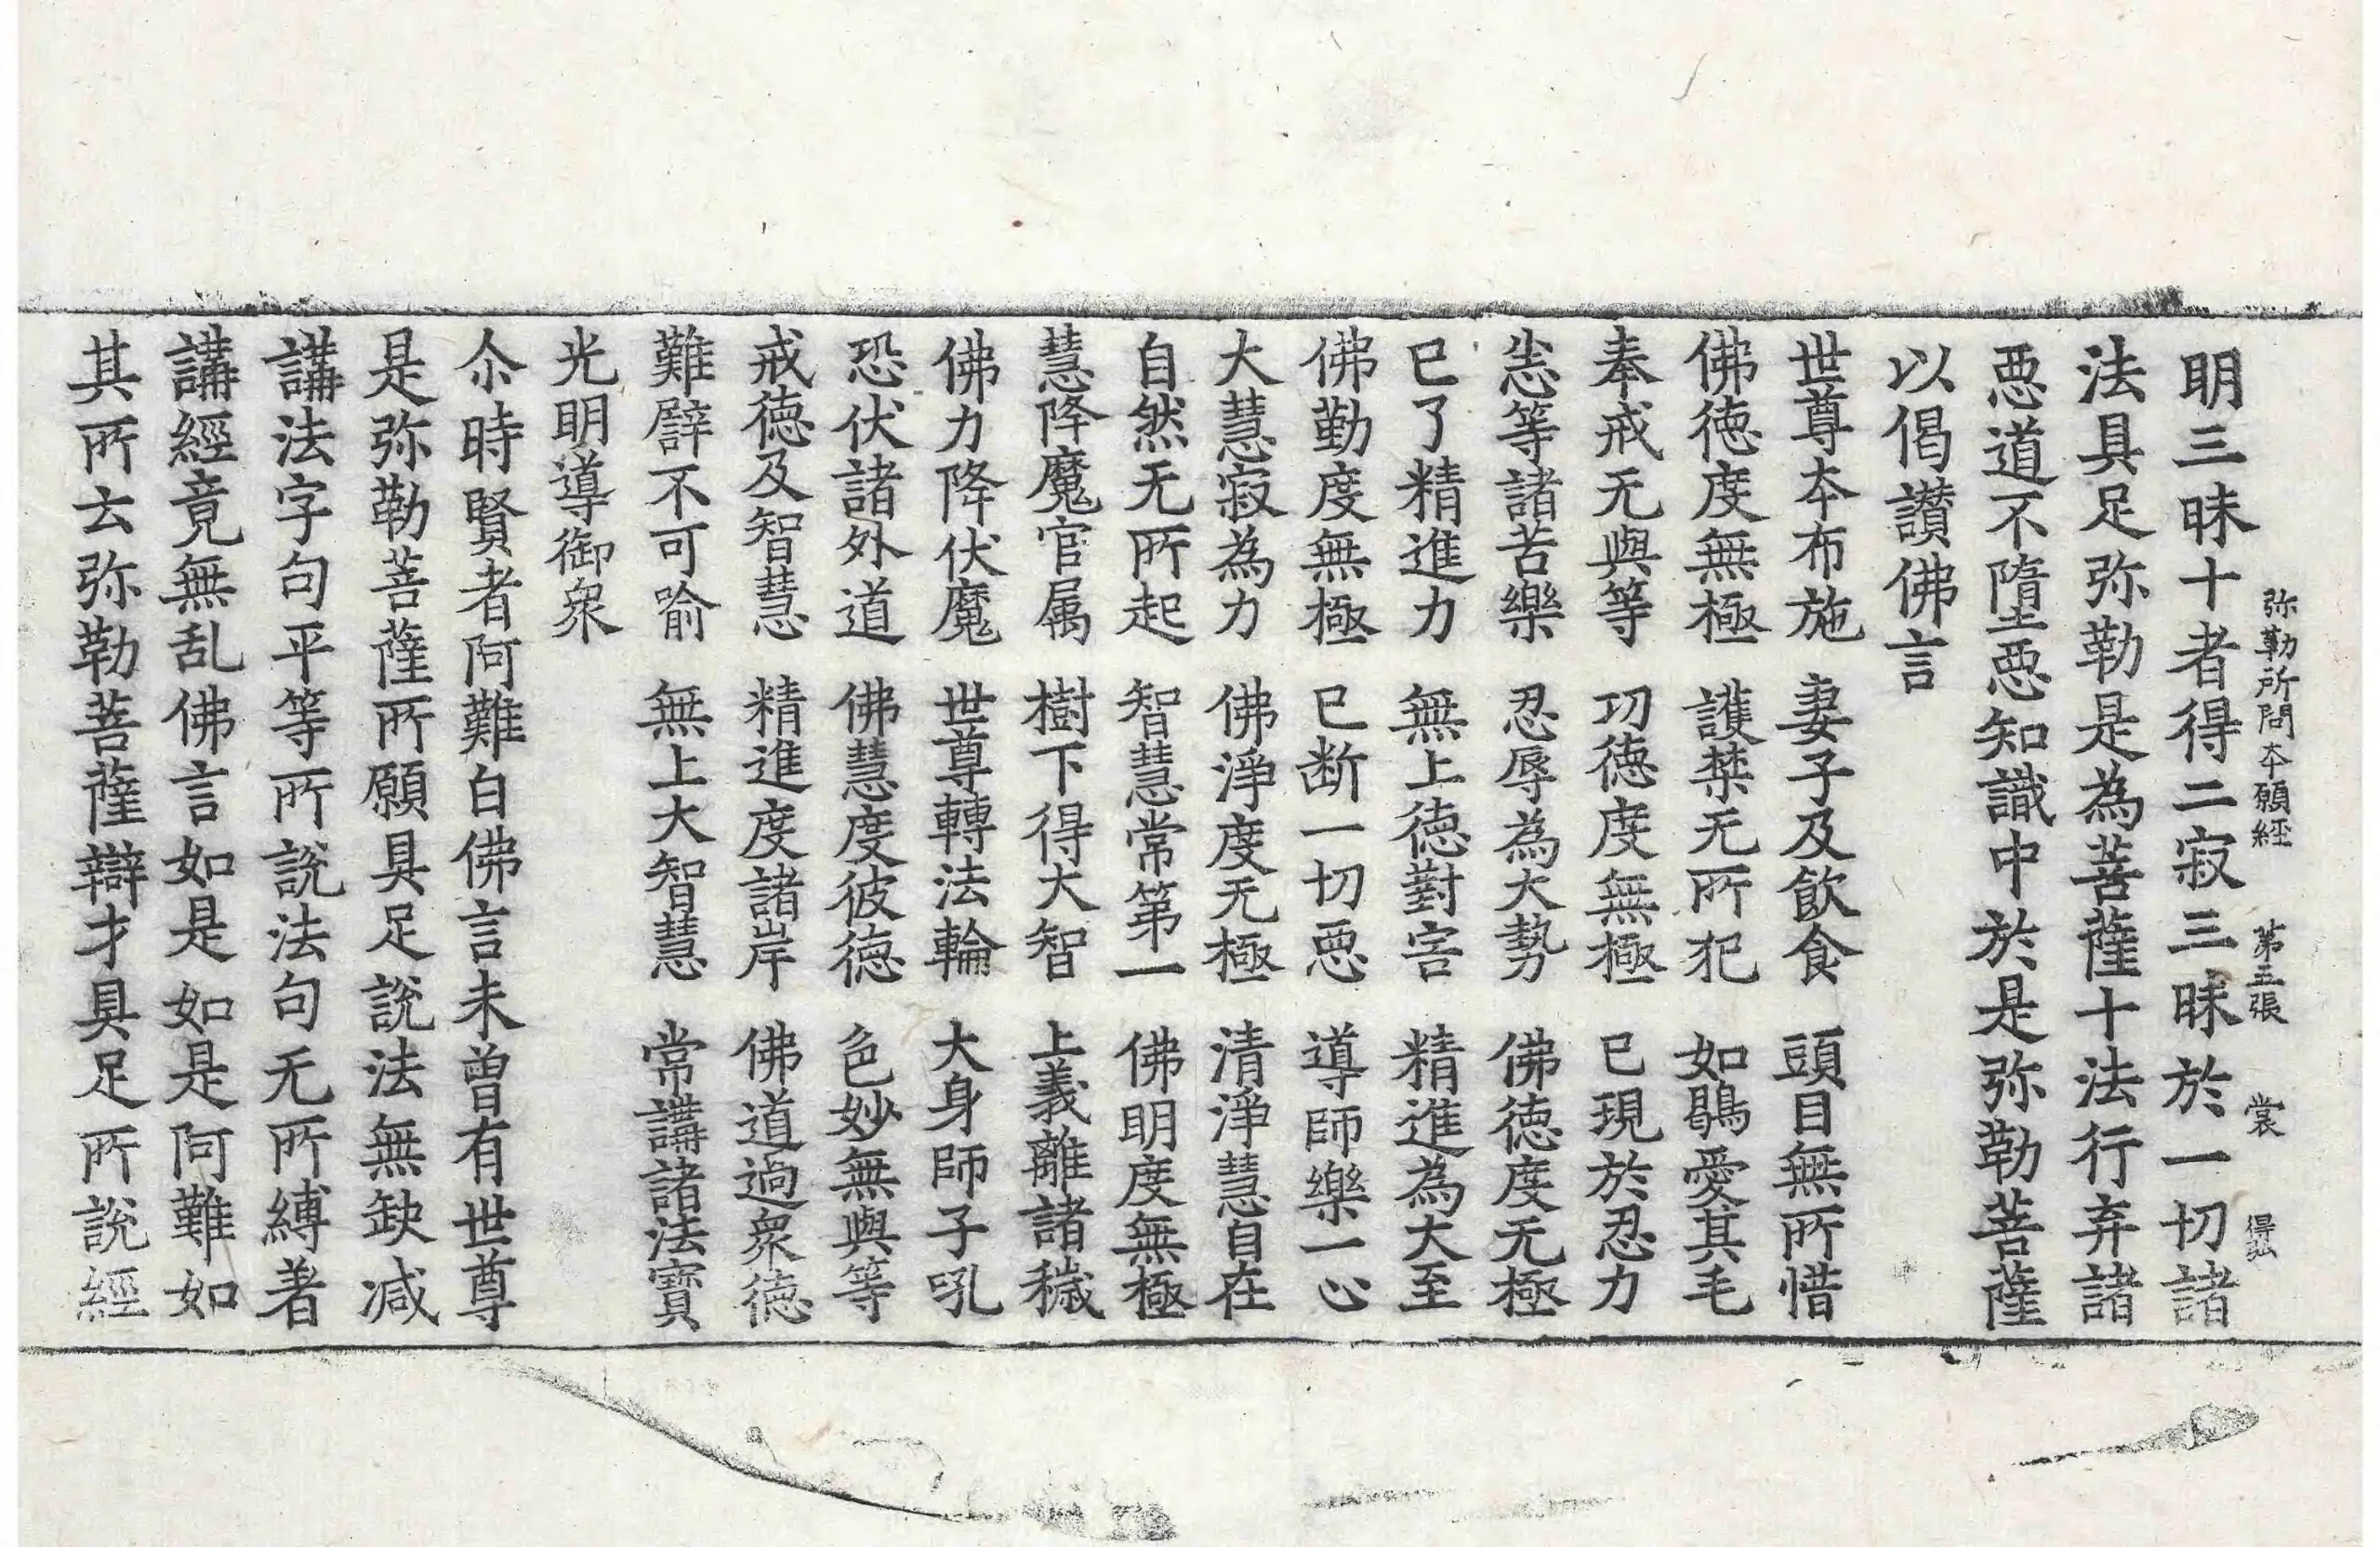 弥勒所問夲願經 第五張 裳 得弘
明三昧十者得二寂三昧於一切諸
法具足弥勒是為菩薩十法行弃諸
惡道不墮惡知識中於是弥勒菩薩
以偈讃佛言
世尊夲布施 妻子及飲食 頭目無所惜
佛德度無極 護禁无所犯 如鶡愛其毛
奉戒无與等 功德度無極 已現於忍力
悉等諸苦樂 忍辱為大勢 佛德度无極
已了精進力 無上德對害 精進為大至
佛勤度無極 已断一切惡 導師樂一心
大慧寂為力 佛淨度无極 清淨慧自在
自然无所起 智慧常第一 佛明度無極
慧降魔官属 樹下得大智 上義離諸穢
佛力降伏魔 世尊轉法輪 大身師子吼
恐伏諸外道 佛慧度彼德 色妙無與等
戒德及智慧 精進度諸岸 佛道過衆德
難譬不可喻 無上大智慧 常講諸法寶
光明導御衆
尒時賢者阿難白佛言未曾有世尊
是弥勒菩薩所願具足說法無缺减
講法字句平等所說法句无所縛著
講經竟無乱佛言如是如是阿難如
其所云弥勒菩薩辯才具足所說經